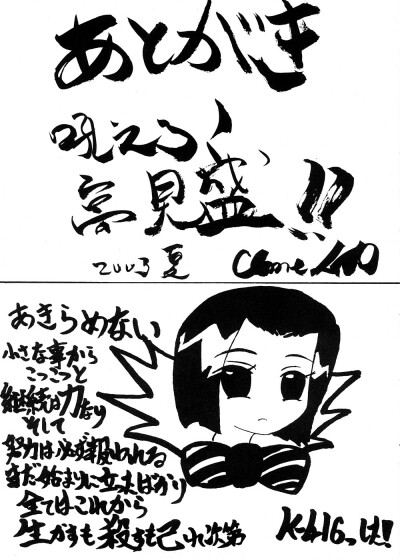 あとがき
吠えろ!
高見盛!!
2003 夏
あきらめない
小さな事から
こつこつと
継続は力なり
そして
努力は必ず報われる
まだ始まりに立ったばかり
全てはこれから
生かすも殺すも己れ次第